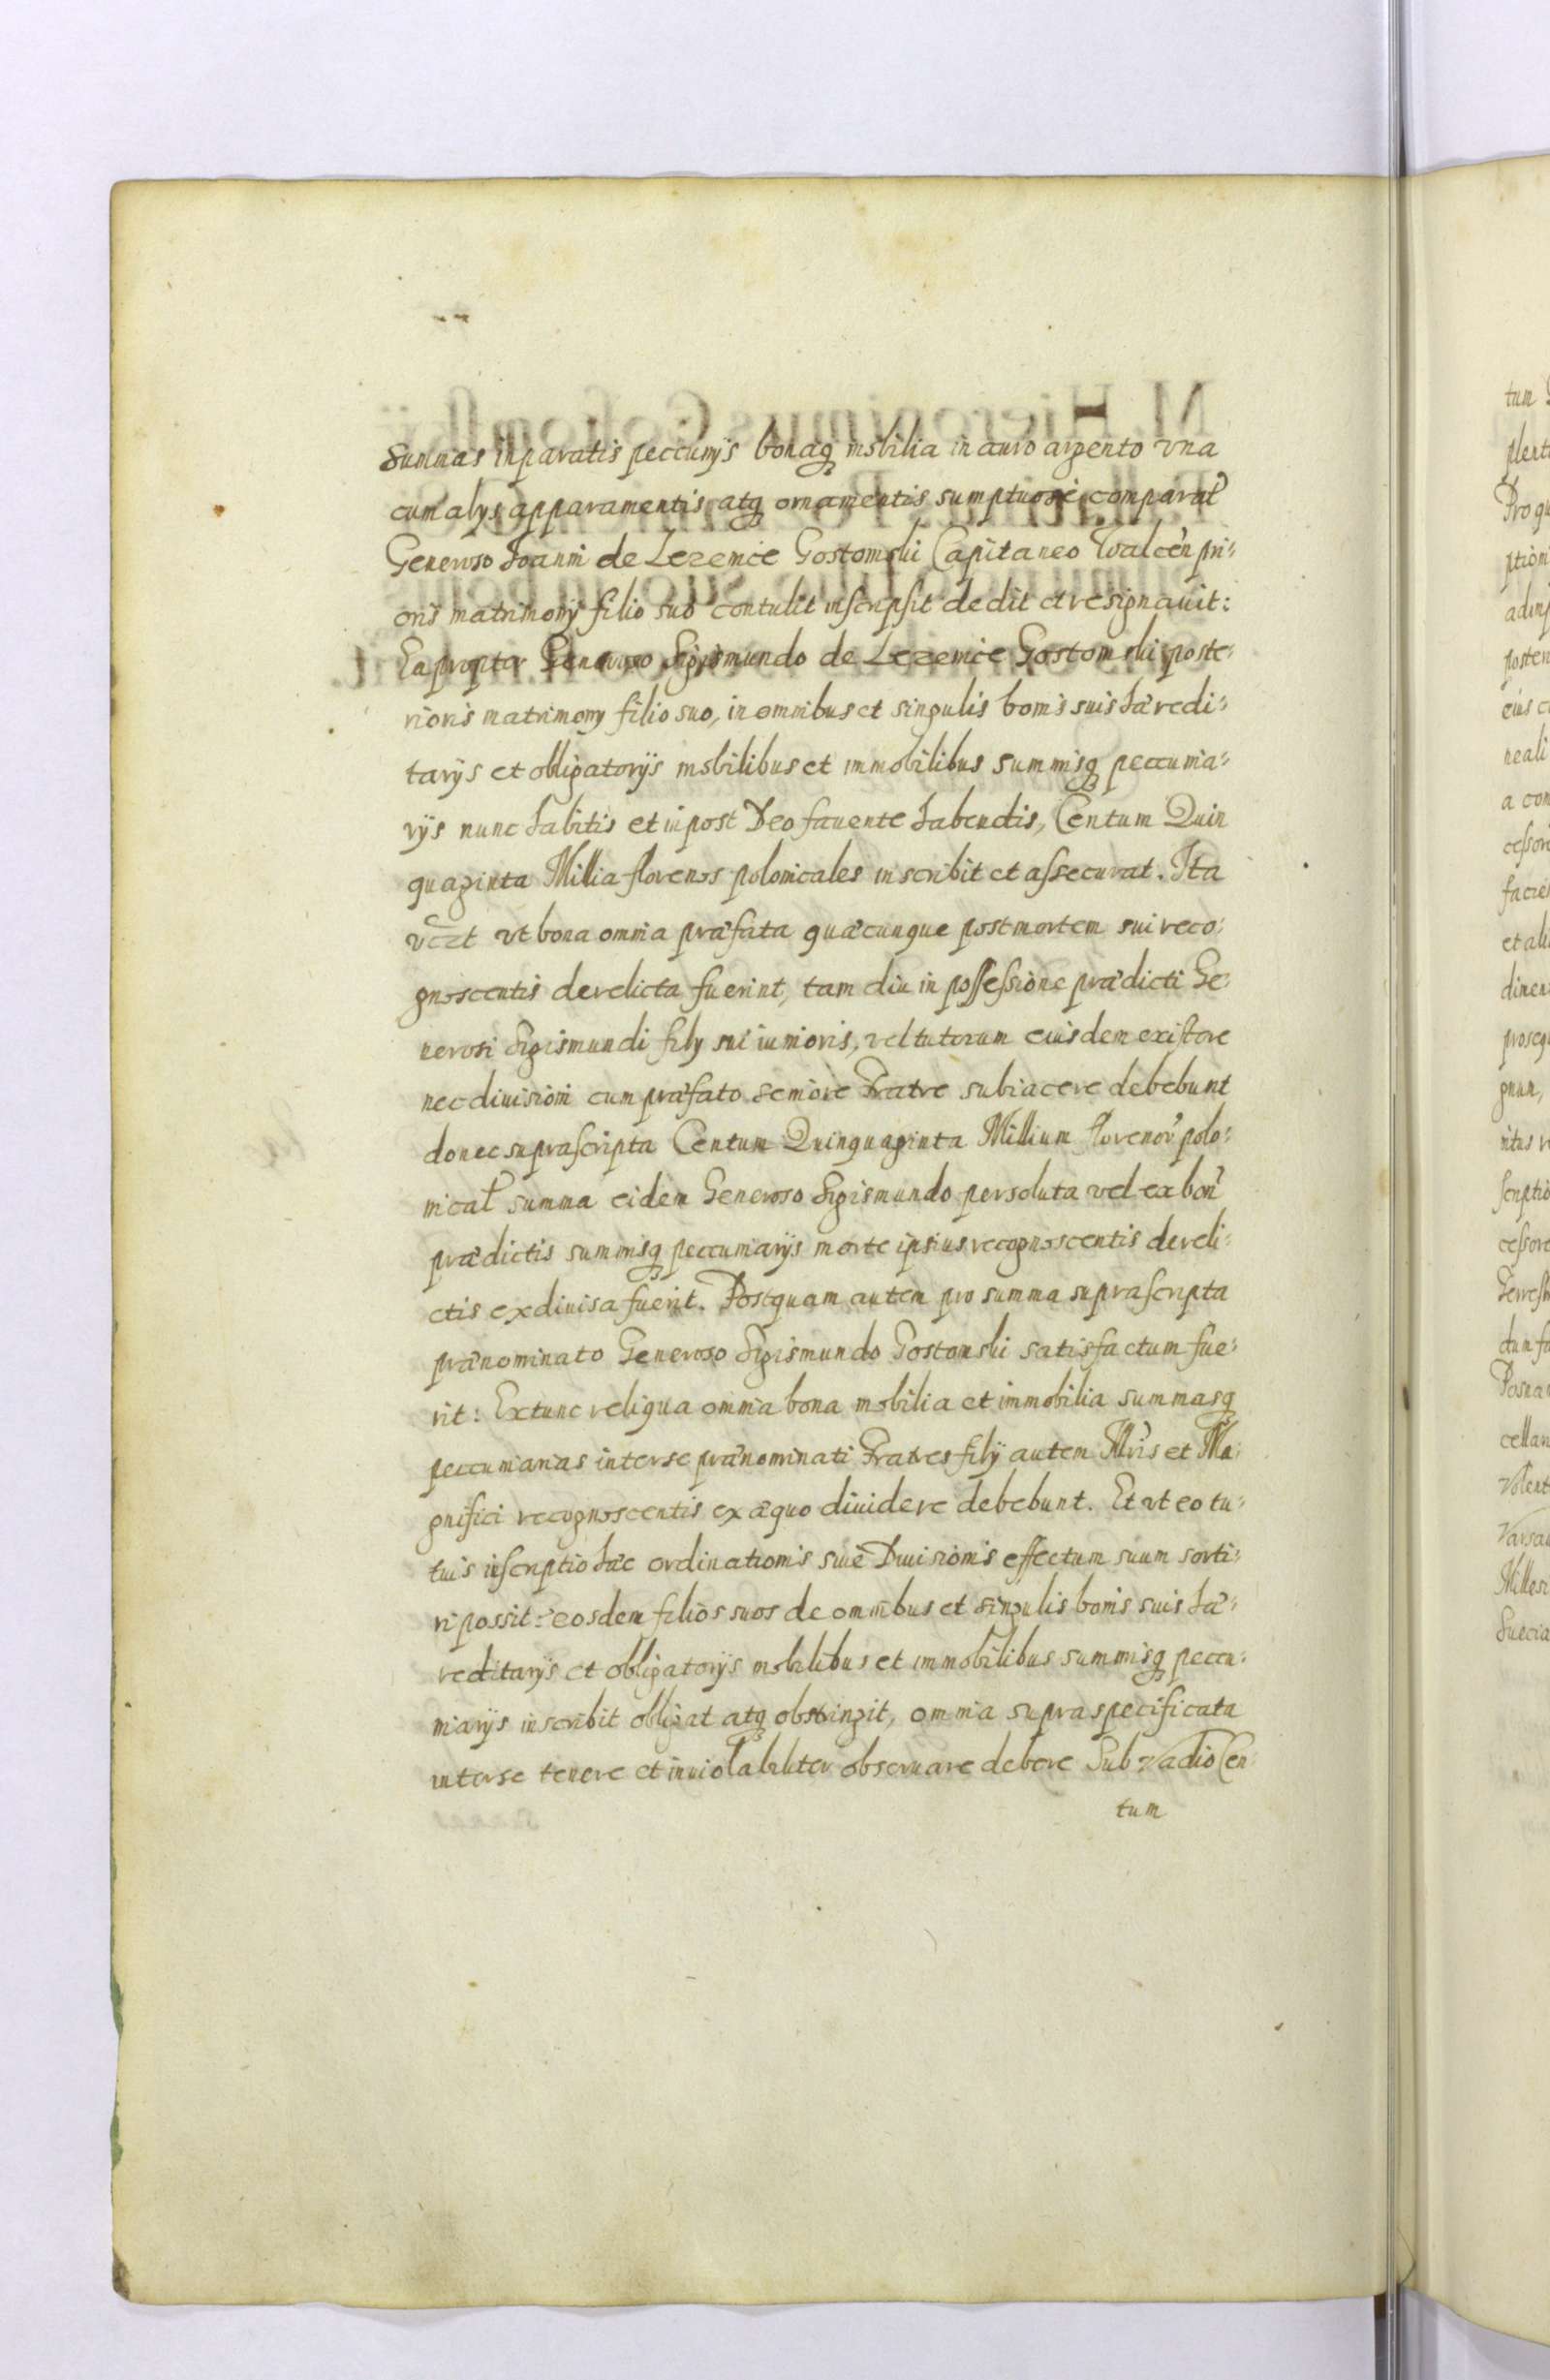 Summas in paratis peccunijs bonaq3 mobilia in auro argento vna
cum alys apparamentis atq3 ornamentis sumptuose comparat
Generoso Joanni de Lezenice Gostomski Capitaneo Walcen pri:
oris matrimonij filio suo contulit inscripsit dedit et resignauit:
Ea propter Generoso Sigismundo de Lezenice Gostomski poste:
rioris matrimony filio suo, in omnibus et singulis bonis suis hæredi:
tarijs et obligatorijs mobilibus et immobilibus summisq3 peccunia:
rijs nunc habitis et inpost Deo fauente habendis, Centum Quin
quaginta Millia florenos polonicales inscribit et assecurat. Ita
vczt vt bona omnia præfata quæcunque post mortem sui reco:
gnoscentis derelicta fuerint, tam diu in possessione prædicti Ge:
nerosi Sigismundi fily sui iunioris, vel tutorum eiusdem existere
nec diuisioni cum præfato seniore Fratre subiacere debebunt
donec suprascripta Centum Quinquaginta Millium florenor polo:
nical summa eidem Generoso Sigismundo persoluta vel ex bon
prædictis summisq3 peccuniarijs morte ipsius recognoscentis dereli:
ctis exdiuisa fuerit. Postquam autem pro summa suprascripta
prænominato Generoso Sigismundo Gostomski satisfactum fue:
rit: Extunc reliqua omnia bona mobilia et immobilia summasq3
peccuniarias inter se prænominati Fratres filij autem Illris et Ma:
gnifici recognoscentis ex æquo diuidere debebunt. Et vt eo tu:
tius inscriptio hæc ordinationis siue Diuisionis effectum suum sorti:
ri possit: eosdem filios suos de omnibus et singulis bonis suis hæ:
reditarijs et obligatorijs mobilibus et immobilibus summisq3 peccu:
niarijs inscribit obligat atq3 obstringit, omnia supraspecificata
inter se tenere et inuiolabiliter obseruare debere Sub vadio Cen:
tum